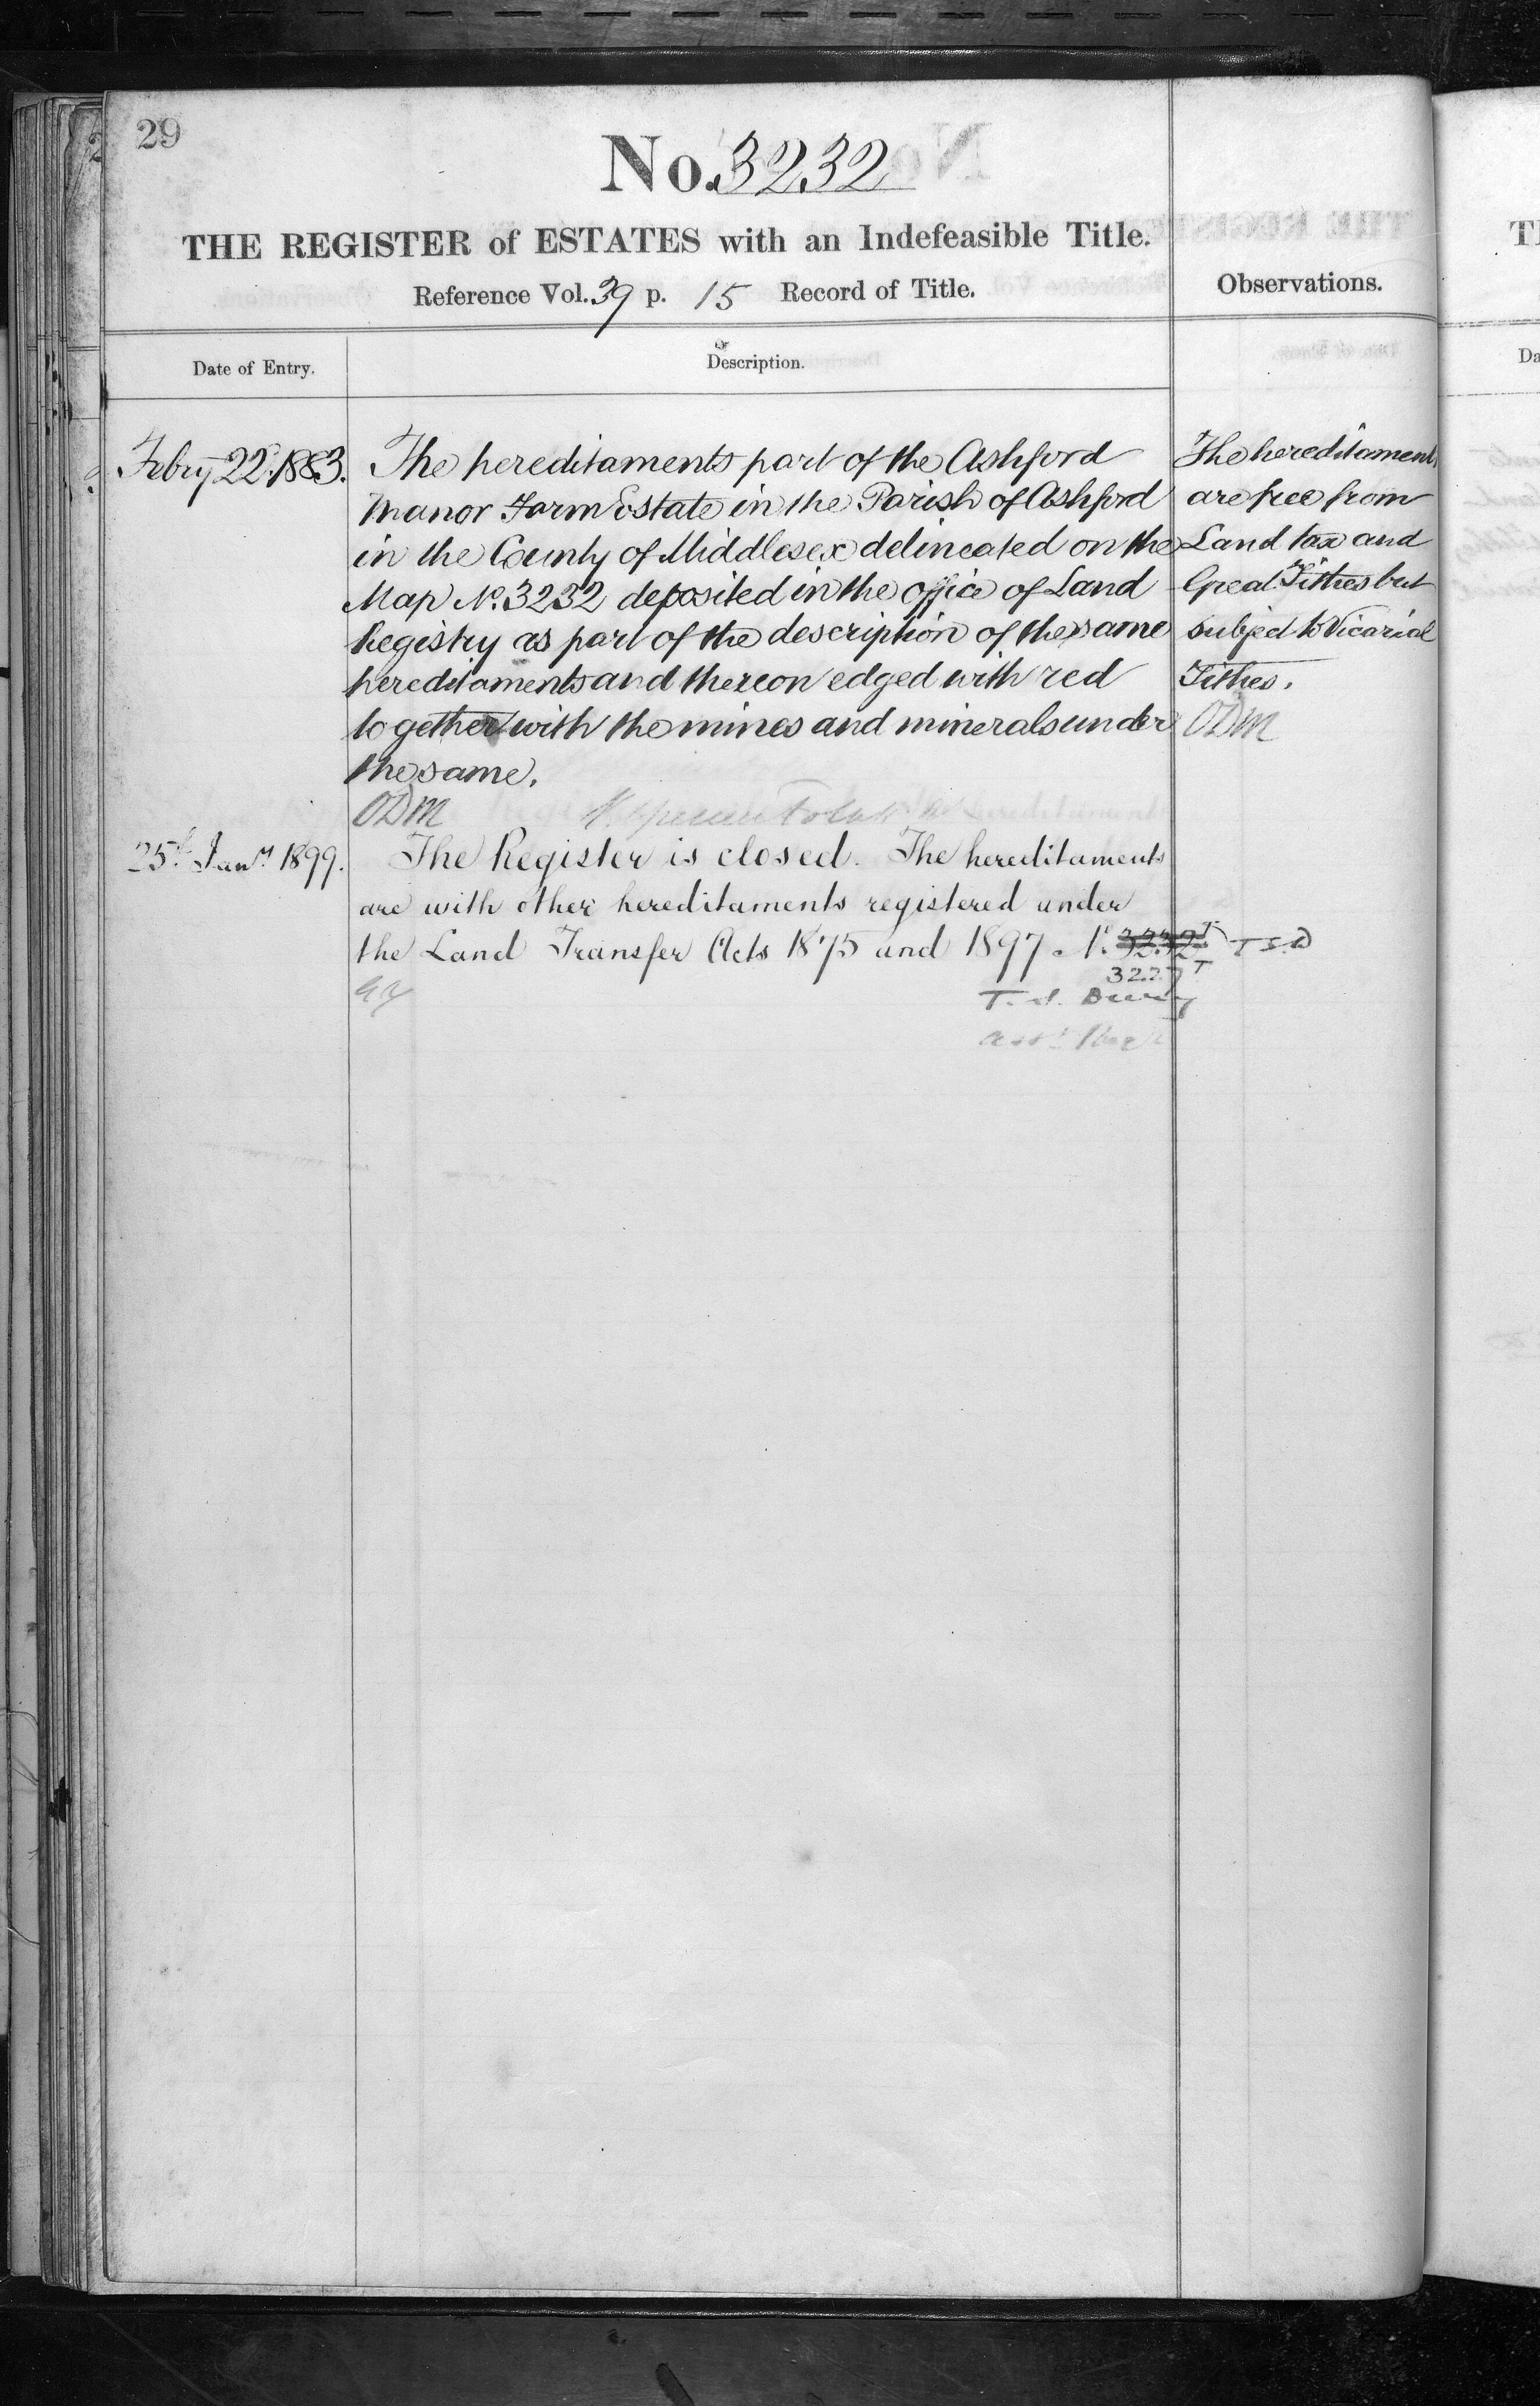 29
No. 3232
THE REGISTER of ESTATES with an Indefeasible Title.
Reference Vol. 39 p. 15 Record of Title.
Observations.
Date of Entry.
Description.
Febry 22d. 1883.
The hereditaments part of the Ashford
Manor Farm Estate in the Parish of Ashford
in the County of Middlesex delineated on the
Map No. 3232 deposited in the office of Land
Registry as part of the description of the same
hereditaments and thereon edged with red
together with the mines and minerals under
the same.
ODM
The hereditaments
are free from
Land tax and
Great Tithes but
subject to Vicarial
Tithes.
ODM
25th Jany 1899.
The Register is closed. The hereditaments
are with other hereditaments registered under
the Land Transfer Acts 1875 and 1897 No. 3232 T.S.D
3227 T